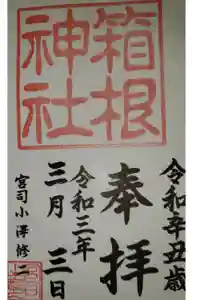 箱根
神社
令和辛丑歳
奉拝
令和三年
三月三日
宮司小澤修二